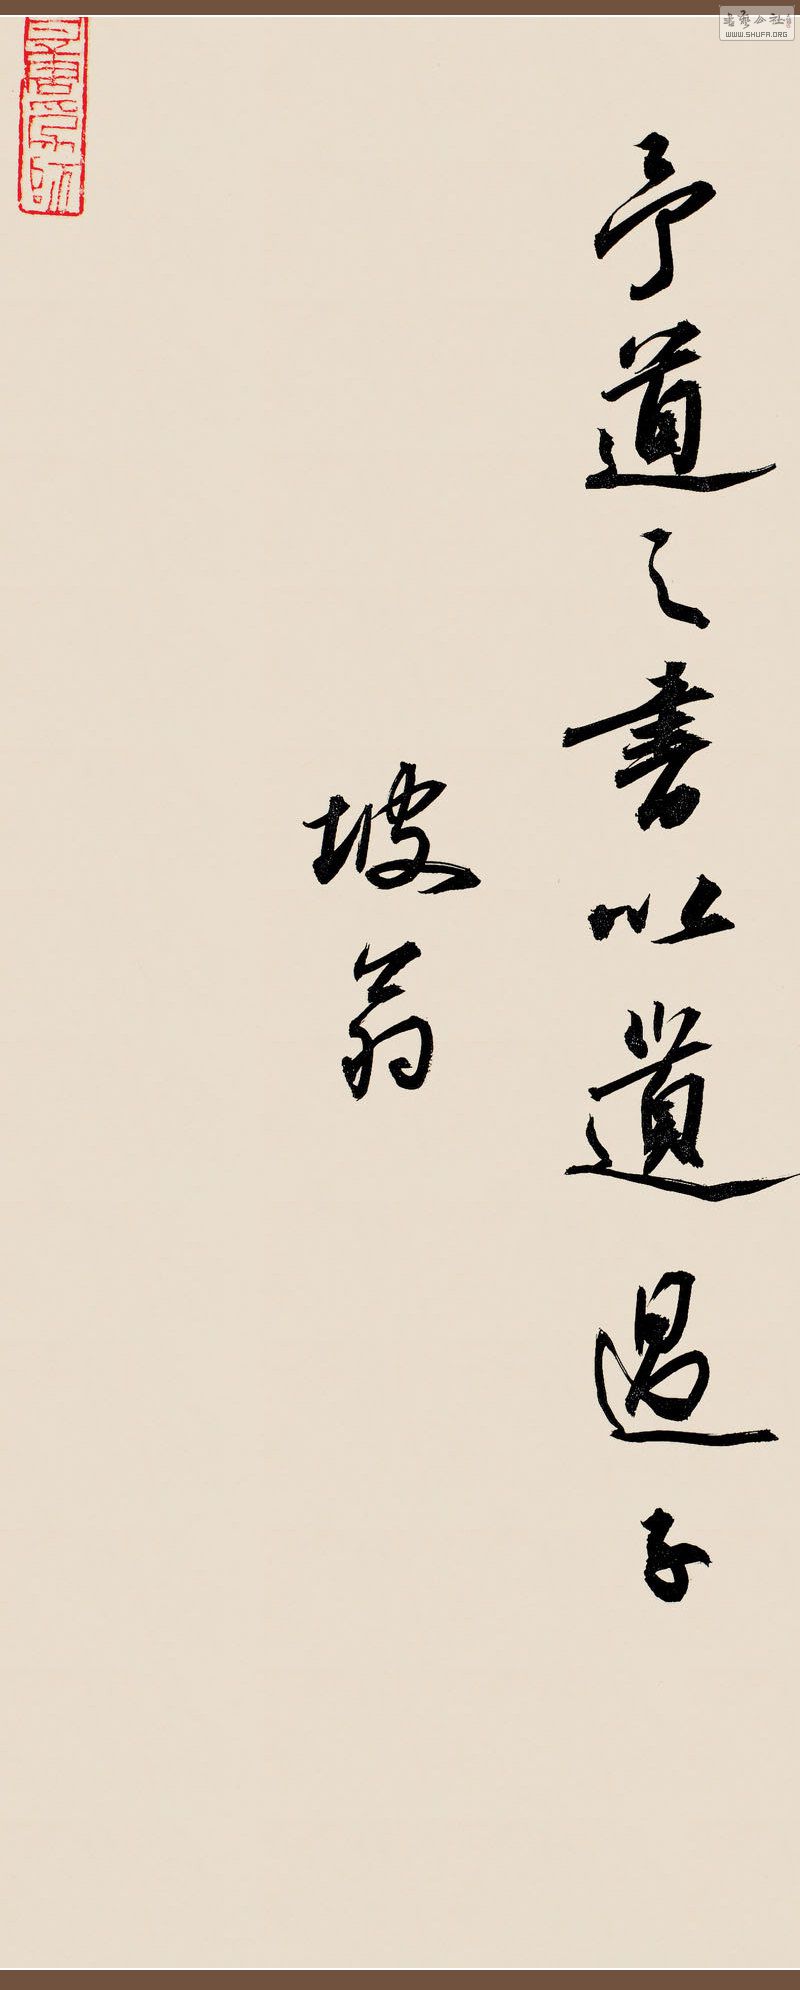 予道之書以遺過子
坡翁
書藝公社
WWW.SHUFA.ORG